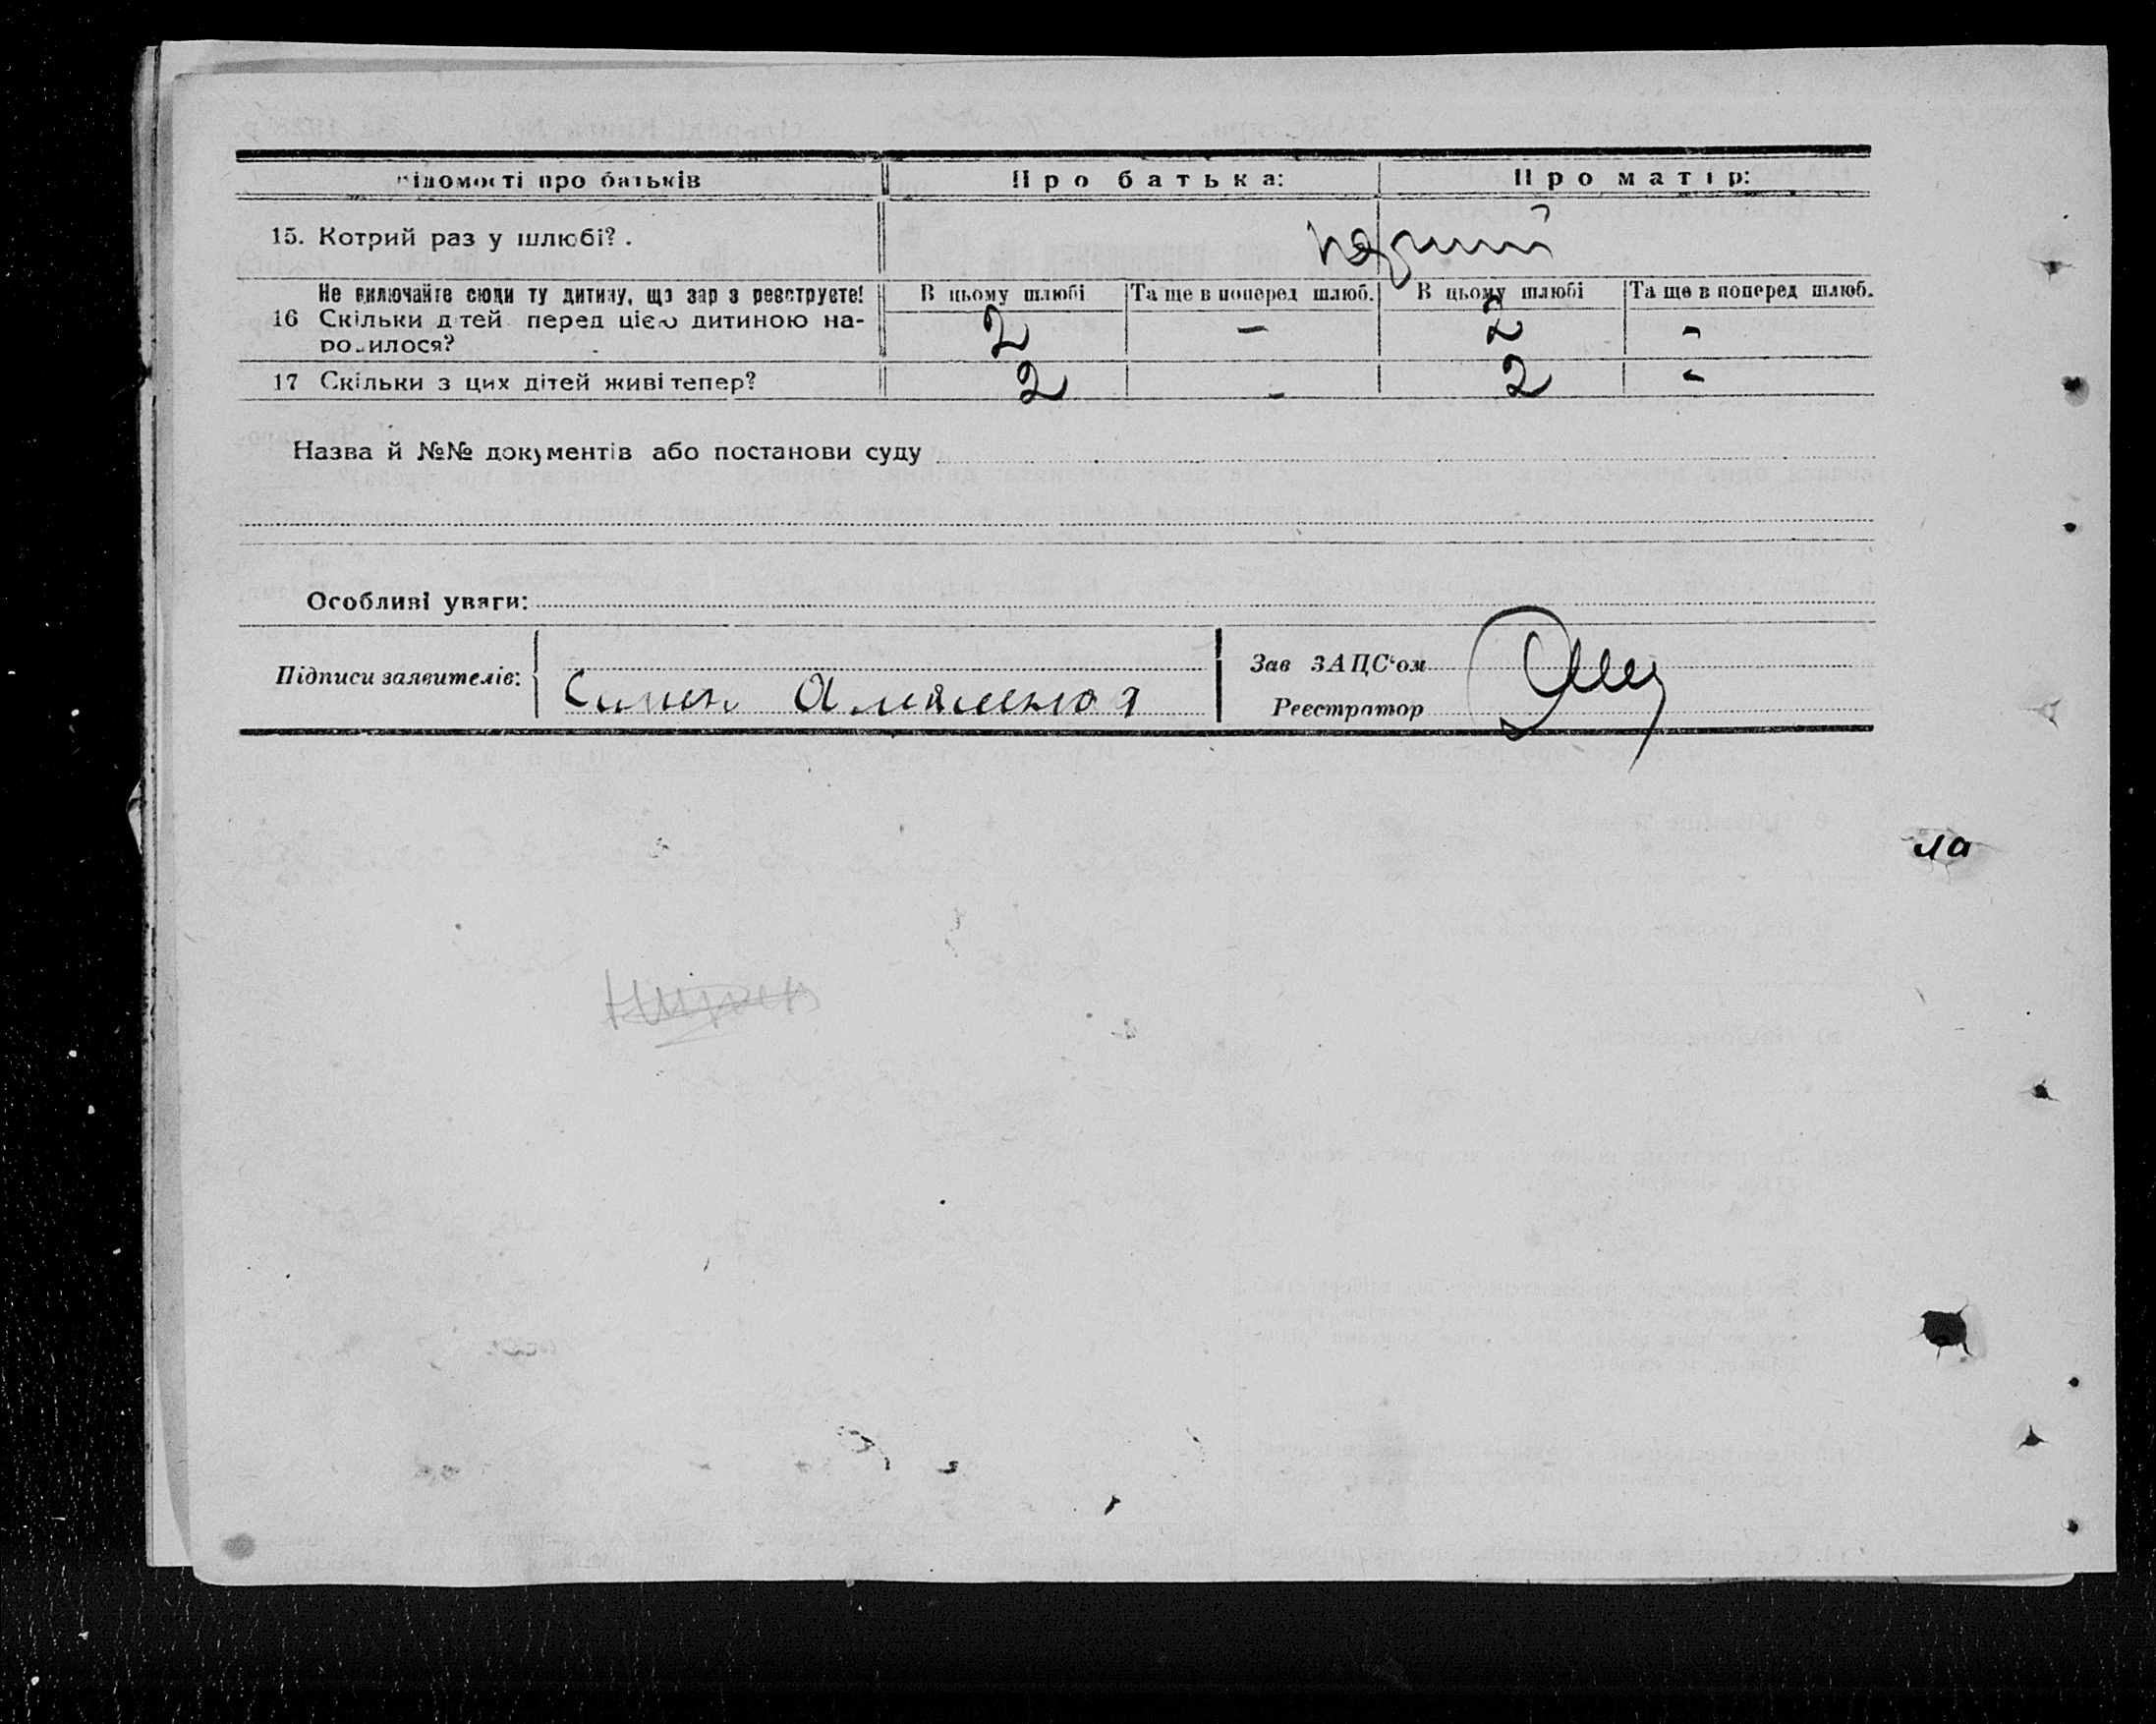 Відомості про батьків Про батька: Про матір:
15. Котрий раз у шлюбі? . перший
Не включайте сюди ту дитину, що зараз реєструєте! В цьому шлюбі Та ще в поперед шлюб. В цьому шлюбі Та ще в поперед шлюб.
16 Скільки дітей перед цією дитиною на- 2 - 2 -
родилося?
17 Скільки з цих дітей живі тепер? 2 - 2 -
Назва й №№ документів або постанови суду
Особливі уваги:
Підписи заявителів:
Симен
Зав ЗАЦС'ом
Реєстратор
ла